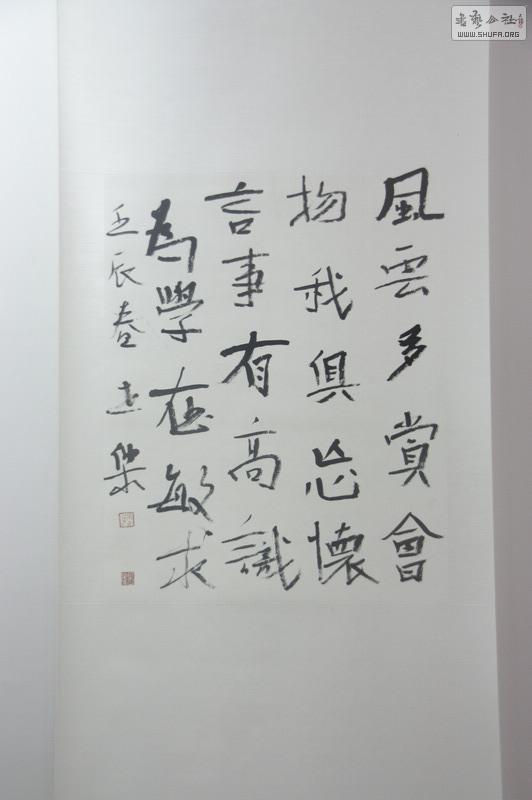 風雲多賞會
物我俱忘懷
言事有高識
為學在敏求
壬辰春 世傑
書藝公社
WWW.SHUFA.ORG